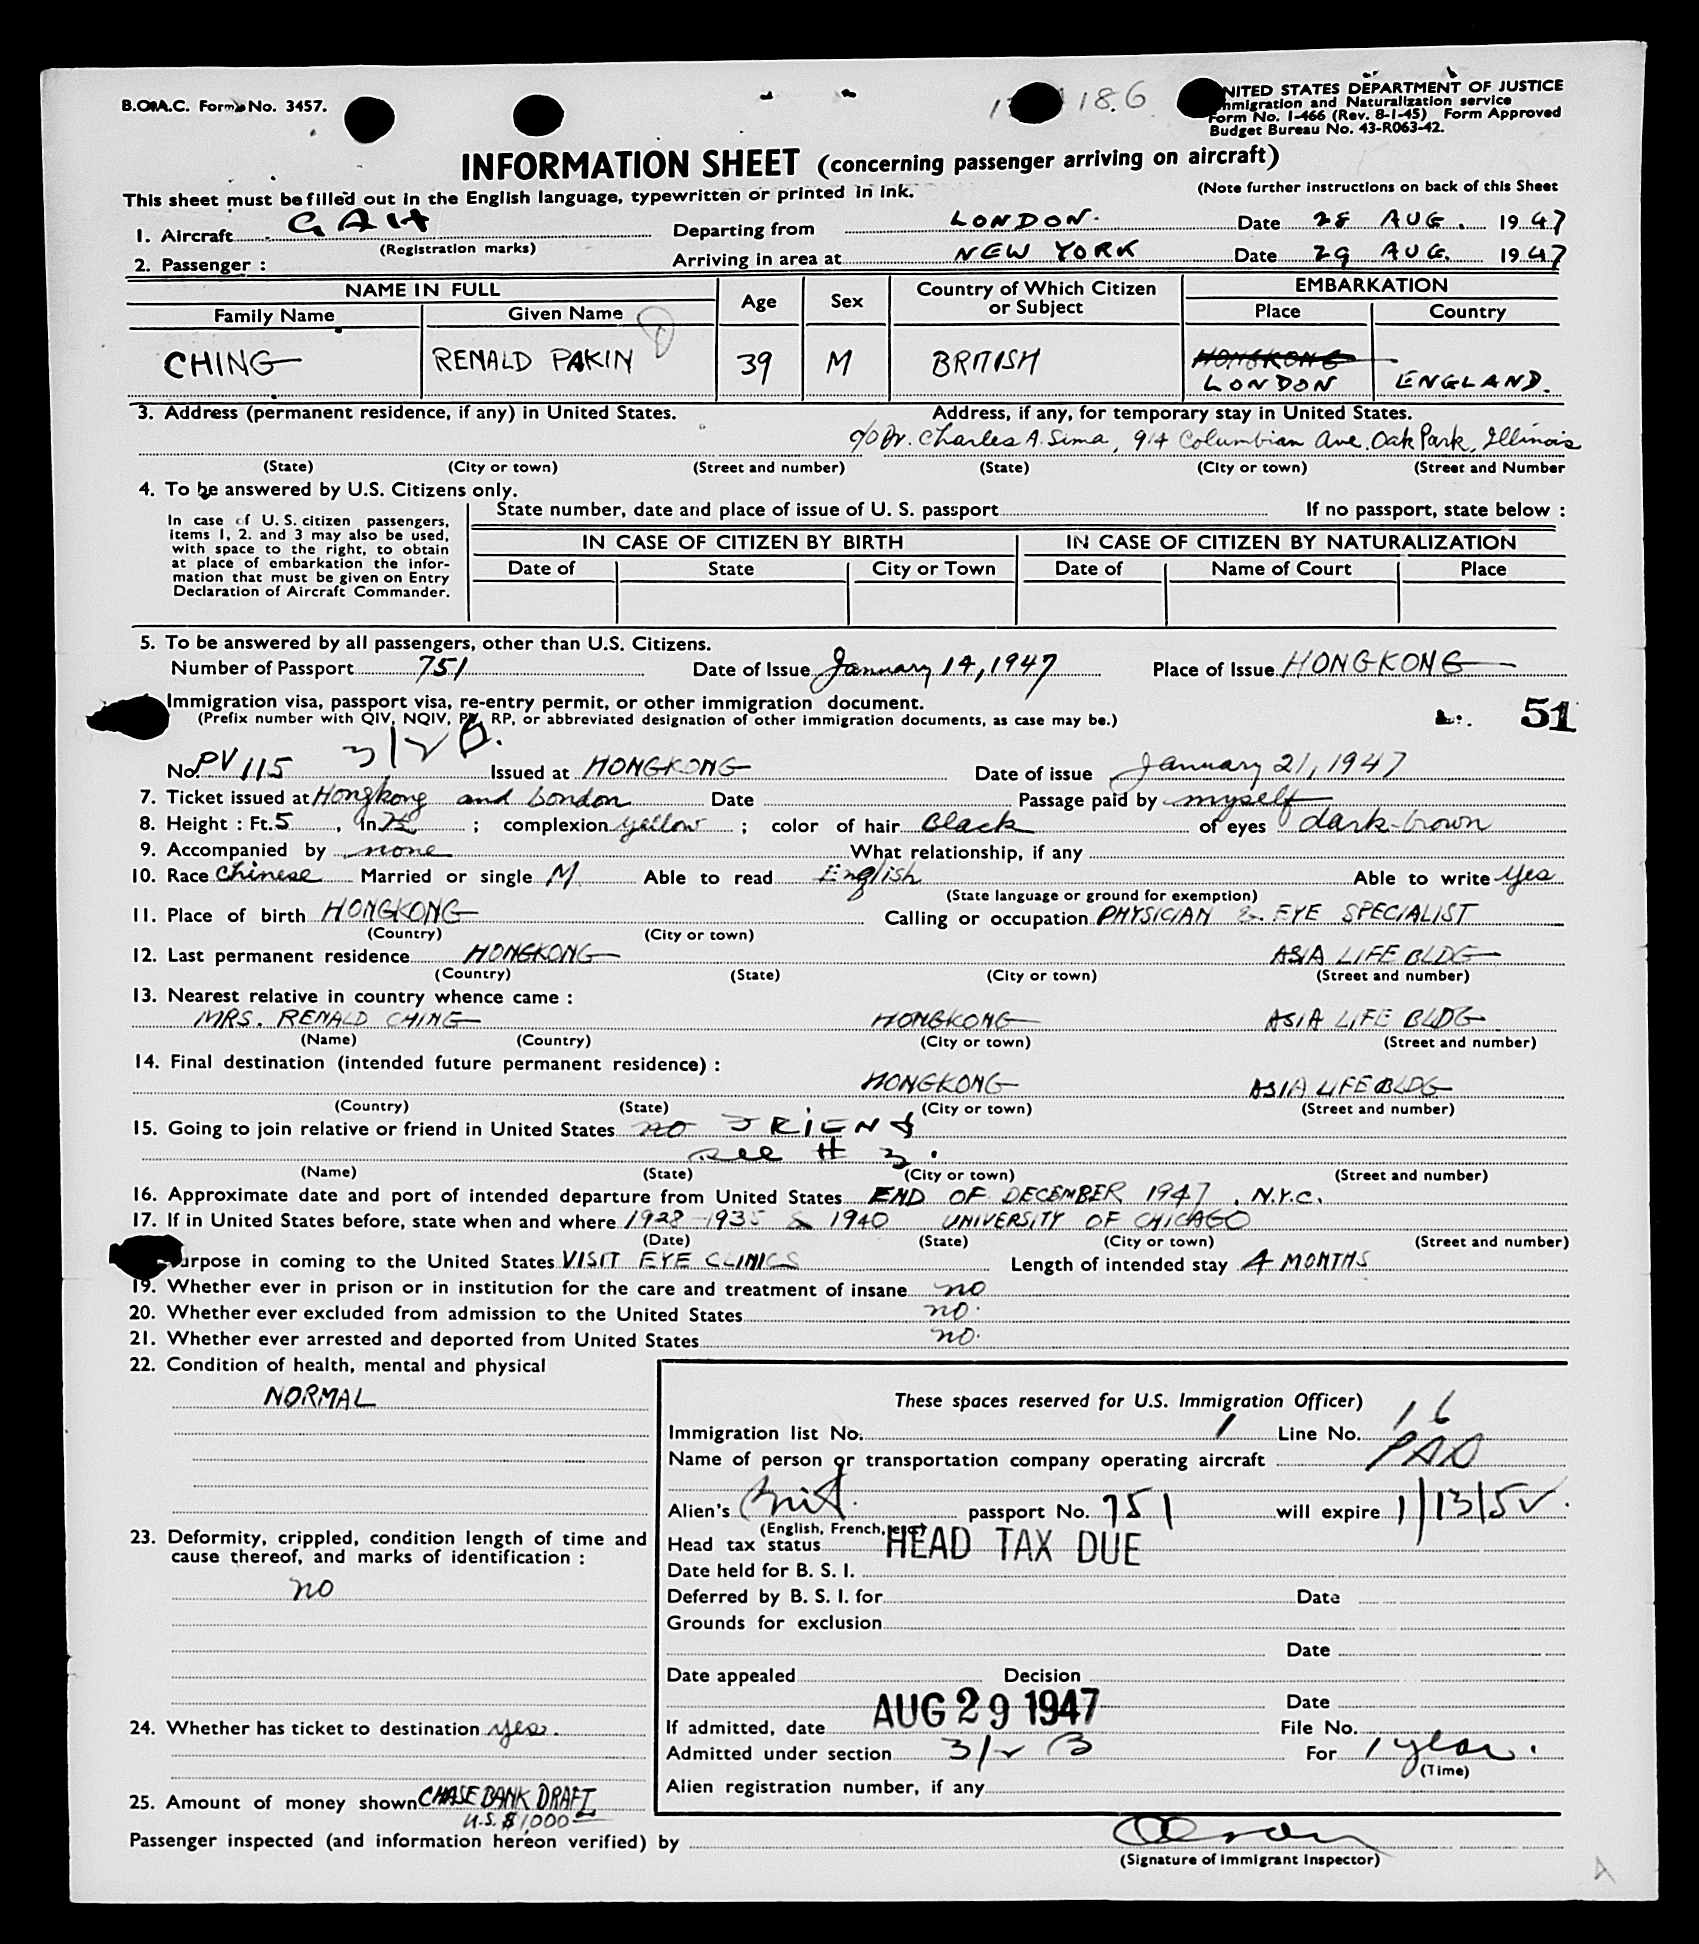 B.O.A.C. Form No. 3457.
18.6
UNITED STATES DEPARTMENT OF JUSTICE
Immigration and Naturalization service
Form No. I-466 (Rev. 8-1-45) Form Approved
Budget Bureau No. 43-R063-42.
INFORMATION SHEET (concerning passenger arriving on aircraft)
This sheet must be filled out in the English language, typewritten or printed in ink.
(Note further instructions on back of this Sheet
1. Aircraft GAH Departing from LONDON. Date 28 AUG. 1947
(Registration marks)
2. Passenger : Arriving in area at NEW YORK Date 29 AUG. 1947
NAME IN FULL Age Sex Country of Which Citizen or Subject EMBARKATION
Family Name Given Name Place Country
CHING RENALD PAKIN 39 M BRITISH HONGKONG
LONDON ENGLAND.
3. Address (permanent residence, if any) in United States. Address, if any, for temporary stay in United States.
c/o Dr. Charles A. Sima, 914 Columbian Ave. Oak Park, Illinois
(State) (City or town) (Street and number) (State) (City or town) (Street and Number
4. To be answered by U.S. Citizens only.
In case of U. S. citizen passengers, items 1, 2. and 3 may also be used, with space to the right, to obtain at place of embarkation the information that must be given on Entry Declaration of Aircraft Commander.
State number, date and place of issue of U. S. passport If no passport, state below :
IN CASE OF CITIZEN BY BIRTH IN CASE OF CITIZEN BY NATURALIZATION
Date of State City or Town Date of Name of Court Place
5. To be answered by all passengers, other than U.S. Citizens.
Number of Passport 751 Date of Issue January 14, 1947 Place of Issue HONGKONG
Immigration visa, passport visa, re-entry permit, or other immigration document.
(Prefix number with QIV, NQIV, PV, RP, or abbreviated designation of other immigration documents, as case may be.)
51
3/2 B.
No. PV 115 Issued at HONGKONG Date of issue January 21, 1947
7. Ticket issued at Hongkong and London Date Passage paid by myself
8. Height : Ft. 5 , In 7½ ; complexion yellow ; color of hair Black of eyes dark-brown
9. Accompanied by none What relationship, if any
10. Race Chinese Married or single M Able to read English Able to write Yes
(State language or ground for exemption)
11. Place of birth HONGKONG Calling or occupation PHYSICIAN & EYE SPECIALIST
(Country) (City or town)
12. Last permanent residence HONGKONG ASIA LIFE BLDG
(Country) (State) (City or town) (Street and number)
13. Nearest relative in country whence came :
MRS. RENALD CHING HONGKONG ASIA LIFE BLDG
(Name) (Country) (City or town) (Street and number)
14. Final destination (intended future permanent residence) :
HONGKONG ASIA LIFE BLDG
(Country) (State) (City or town) (Street and number)
15. Going to join relative or friend in United States no FRIEND
see # 3.
(Name) (State) (City or town) (Street and number)
16. Approximate date and port of intended departure from United States END OF DECEMBER 1947, N.Y.C.
17. If in United States before, state when and where 1928-1935 & 1940 UNIVERSITY OF CHICAGO
(Date) (State) (City or town) (Street and number)
urpose in coming to the United States VISIT EYE CLINICS Length of intended stay 4 MONTHS
19. Whether ever in prison or in institution for the care and treatment of insane no
20. Whether ever excluded from admission to the United States no.
21. Whether ever arrested and deported from United States no.
22. Condition of health, mental and physical
NORMAL
23. Deformity, crippled, condition length of time and cause thereof, and marks of identification :
no
24. Whether has ticket to destination yes.
25. Amount of money shown CHASE BANK DRAFT
U.S. $1,000
These spaces reserved for U.S. Immigration Officer)
Immigration list No. 1 Line No. 16
Name of person or transportation company operating aircraft PAA
Alien's Brit. passport No. 751 will expire 1/13/52.
(English, French, etc)
Head tax status HEAD TAX DUE
Date held for B. S. I.
Deferred by B. S. I. for Date
Grounds for exclusion
Date
Date appealed Decision
Date
If admitted, date AUG 29 1947 File No.
Admitted under section 3/2 B For 1 year.
(Time)
Alien registration number, if any
Passenger inspected (and information hereon verified) by
(Signature of Immigrant Inspector)